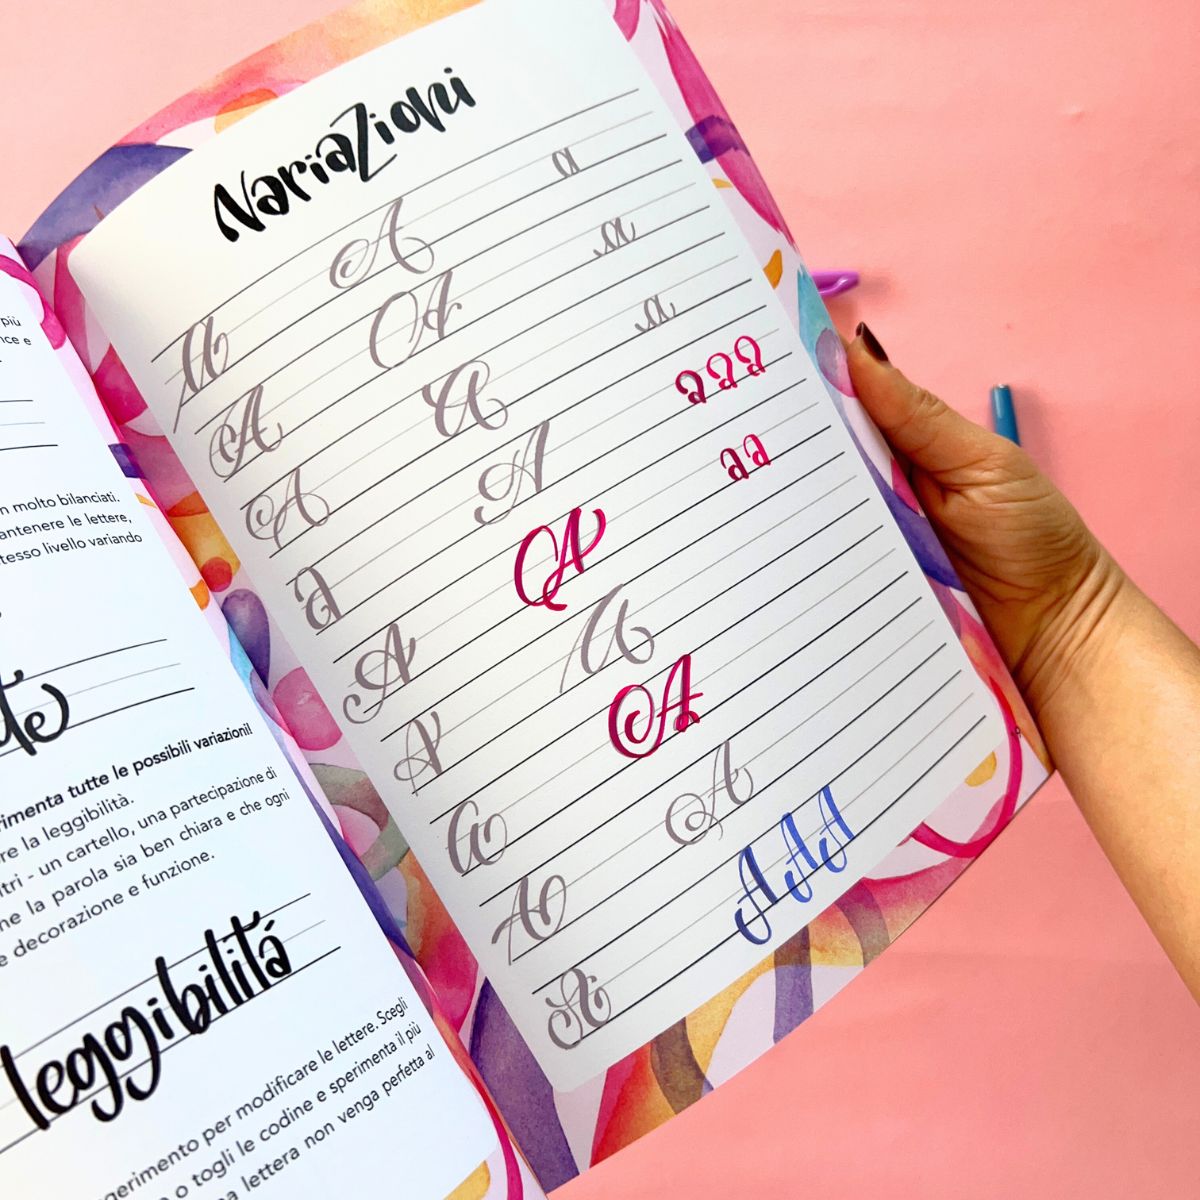 più
nce e
n molto bilanciati.
antenere le lettere,
tesso livello variando
te
rimenta tutte le possibili variazioni!
re la leggibilità.
ltri - un cartello, una partecipazione di
ne la parola sia ben chiara e che ogni
e decorazione e funzione.
leggibilitá
gerimento per modificare le lettere. Scegli
o togli le codine e sperimenta il più
a lettera non venga perfetta al
VariaZioni
A A a
A A a
A A a
a A a a a
A A a a
A A
A A
A A
A A A A